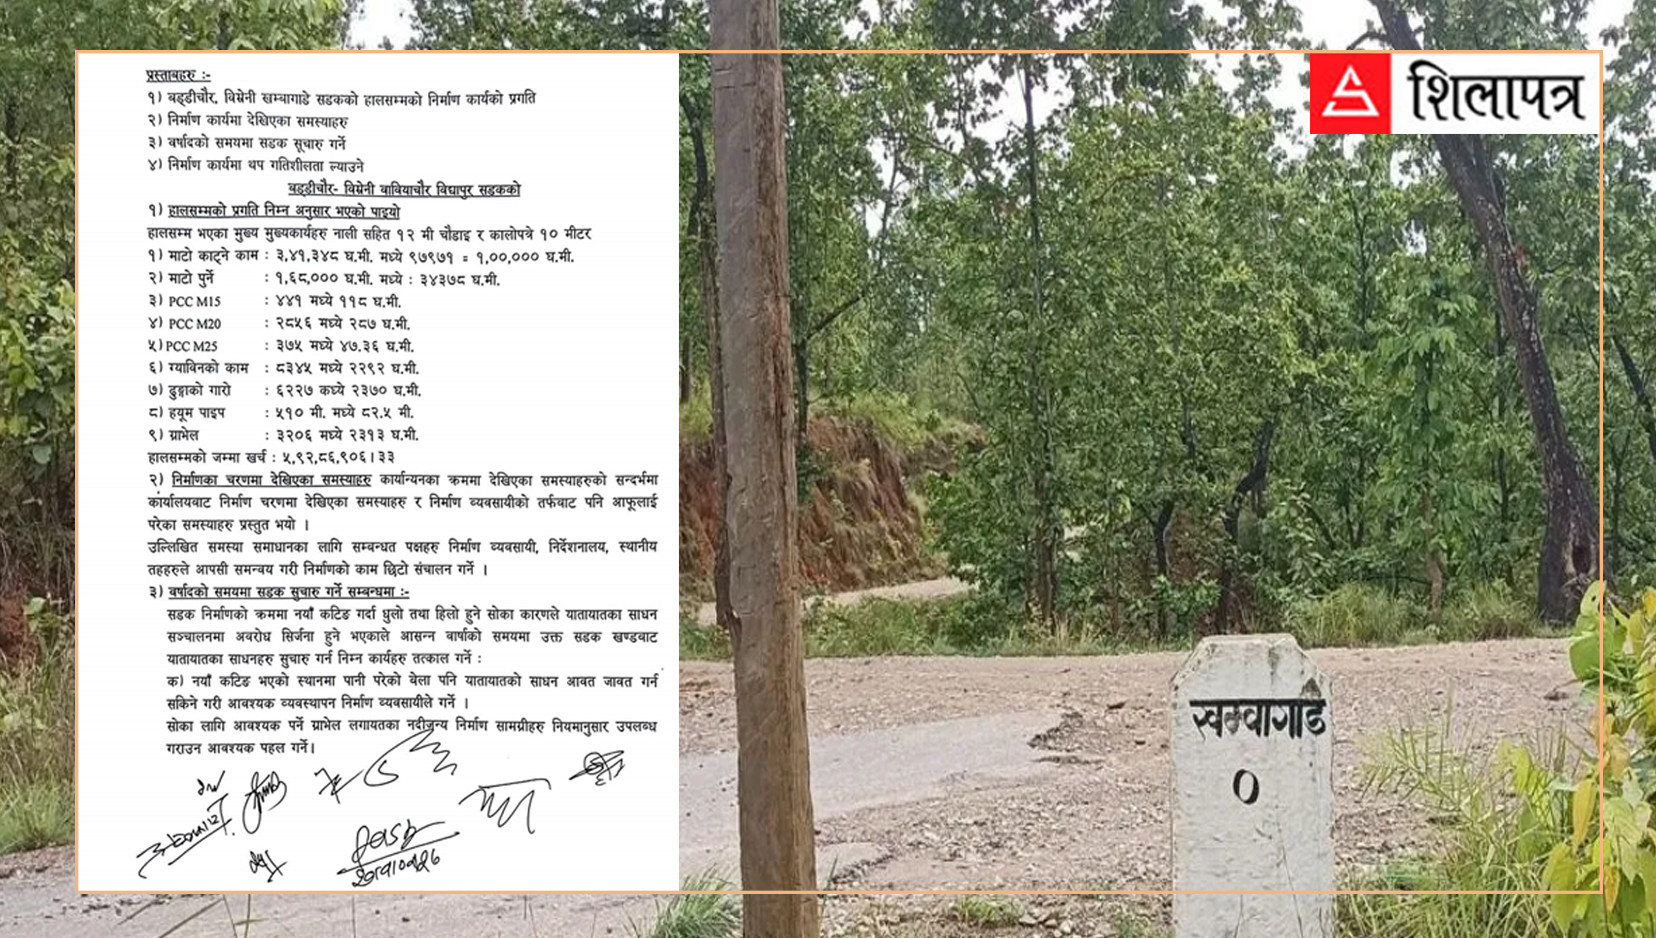 प्रस्तावहरु :-
१) बड्डीचौर, विम्रेनी खम्बागाडे सडकको हालसम्मको निर्माण कार्यको प्रगति
२) निर्माण कार्यमा देखिएका समस्याहरु
३) वर्षादको समयमा सडक सूचारु गर्ने
४) निर्माण कार्यमा थप गतिशीलता ल्याउने
बड्डीचौर- विम्रेनी बाबियाचौर विद्यापुर सडकको
१) हालसम्मको प्रगति निम्न अनुसार भएको पाइयो
हालसम्म भएका मुख्य मुख्यकार्यहरु नाली सहित १२ मी चौडाइ र कालोपत्रे १० मीटर
१) माटो काट्ने काम : ३,४१,३४८ घ.मी. मध्ये ९७९७१ = १,००,००० घ.मी.
२) माटो पुर्ने : १,६८,००० घ.मी. मध्ये : ३४३७८ घ.मी.
३) PCC M15 : ४४१ मध्ये ११८ घ.मी.
४) PCC M20 : २८५६ मध्ये २८७ घ.मी.
५) PCC M25 : ३७५ मध्ये ४७.३६ घ.मी.
६) ग्याविनको काम : ८३४५ मध्ये २२९२ घ.मी.
७) ढुङ्गाको गारो : ६२२७ कध्ये २३७० घ.मी.
८) हयूम पाइप : ५१० मी. मध्ये ८२.५ मी.
९) ग्राभेल : ३२०६ मध्ये २३१३ घ.मी.
हालसम्मको जम्मा खर्च : ५,९२,८६,९०६।३३
२) निर्माणका चरणमा देखिएका समस्याहरु कार्यान्यनका क्रममा देखिएका समस्याहरुको सन्दर्भमा
कार्यालयबाट निर्माण चरणमा देखिएका समस्याहरु र निर्माण व्यवसायीको तर्फबाट पनि आफूलाई
परेका समस्याहरु प्रस्तुत भयो ।
उल्लिखित समस्या समाधानका लागि सम्बन्धत पक्षहरु निर्माण व्यवसायी, निर्देशनालय, स्थानीय
तहहरुले आपसी समन्वय गरी निर्माणको काम छिटो संचालन गर्ने ।
३) वर्षादको समयमा सडक सुचारु गर्ने सम्बन्धमा :-
सडक निर्माणको क्रममा नयाँ कटिङ गर्दा धुलो तथा हिलो हुने सोका कारणले यातायातका साधन
सञ्चालनमा अवरोध सिर्जना हुने भएकाले आसन्न वार्षाको समयमा उक्त सडक खण्डबाट
यातायातका साधनहरु सुचारु गर्न निम्न कार्यहरु तत्काल गर्ने :
क) नयाँ कटिङ भएको स्थानमा पानी परेको वेला पनि यातायातको साधन आवत जावत गर्न
सकिने गरी आवश्यक व्यवस्थापन निर्माण व्यवसायीले गर्ने ।
सोका लागि आवश्यक पर्ने ग्राभेल लगायतका नदीजन्य निर्माण सामग्रीहरु नियमानुसार उपलब्ध
गराउन आवश्यक पहल गर्ने।
शिलापत्र
खम्बागाडे
०